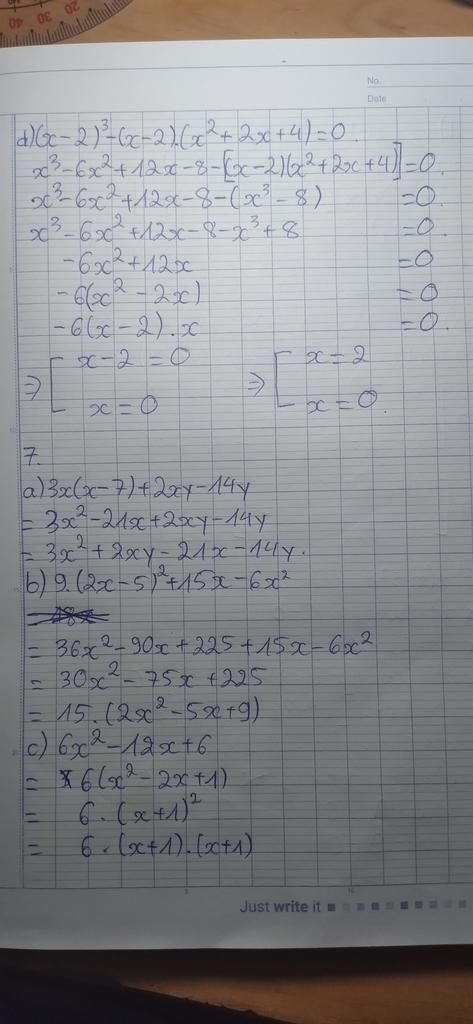 40 30 20
No.
Date
d) (x-2)³-(x-2).(x²+2x+4)=0.
x³-6x²+12x-8-[(x-2)(x²+2x+4)]=0.
x³-6x²+12x-8-(x³-8) =0.
x³-6x²+12x-8-x³+8 =0.
-6x²+12x =0
-6(x²-2x) =0
-6(x-2).x =0.
⇒ [ x-2=0 ⇒ [ x=2
x=0 x=0.
7.
a) 3x(x-7)+2xy-14y
= 3x²-21x+2xy-14y
= 3x²+2xy-21x-14y.
b) 9.(2x-5)²+15x-6x²
= 36x²-90x+225+15x-6x²
= 30x²-75x+225
= 15.(2x²-5x+9)
c) 6x²-12x+6
= 6(x²-2x+1)
= 6.(x+1)²
= 6.(x+1).(x+1)
Just write it